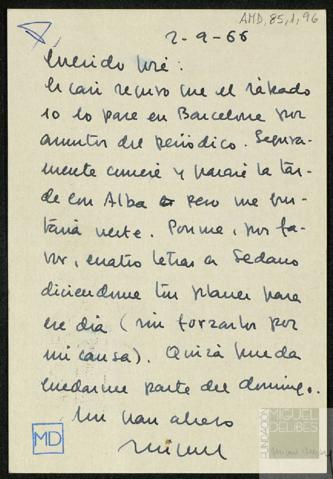 AMD, 85, 1, 96
2-9-66
Querido José:
Es casi seguro que el sábado
10 lo pase en Barcelona por
asuntos del periódico. Segura-
mente comeré y pasaré la tar-
de con Alba pero me gus-
taría verte. Ponme, por fa-
vor, cuatro letras a Sedano
diciendome tus planes para
ese día (sin forzarlos por
mi causa). Quizá pueda
quedarme parte del domingo.
Un gran abrazo
Miguel
MD
FUNDACIÓN
MIGUEL
DELIBES